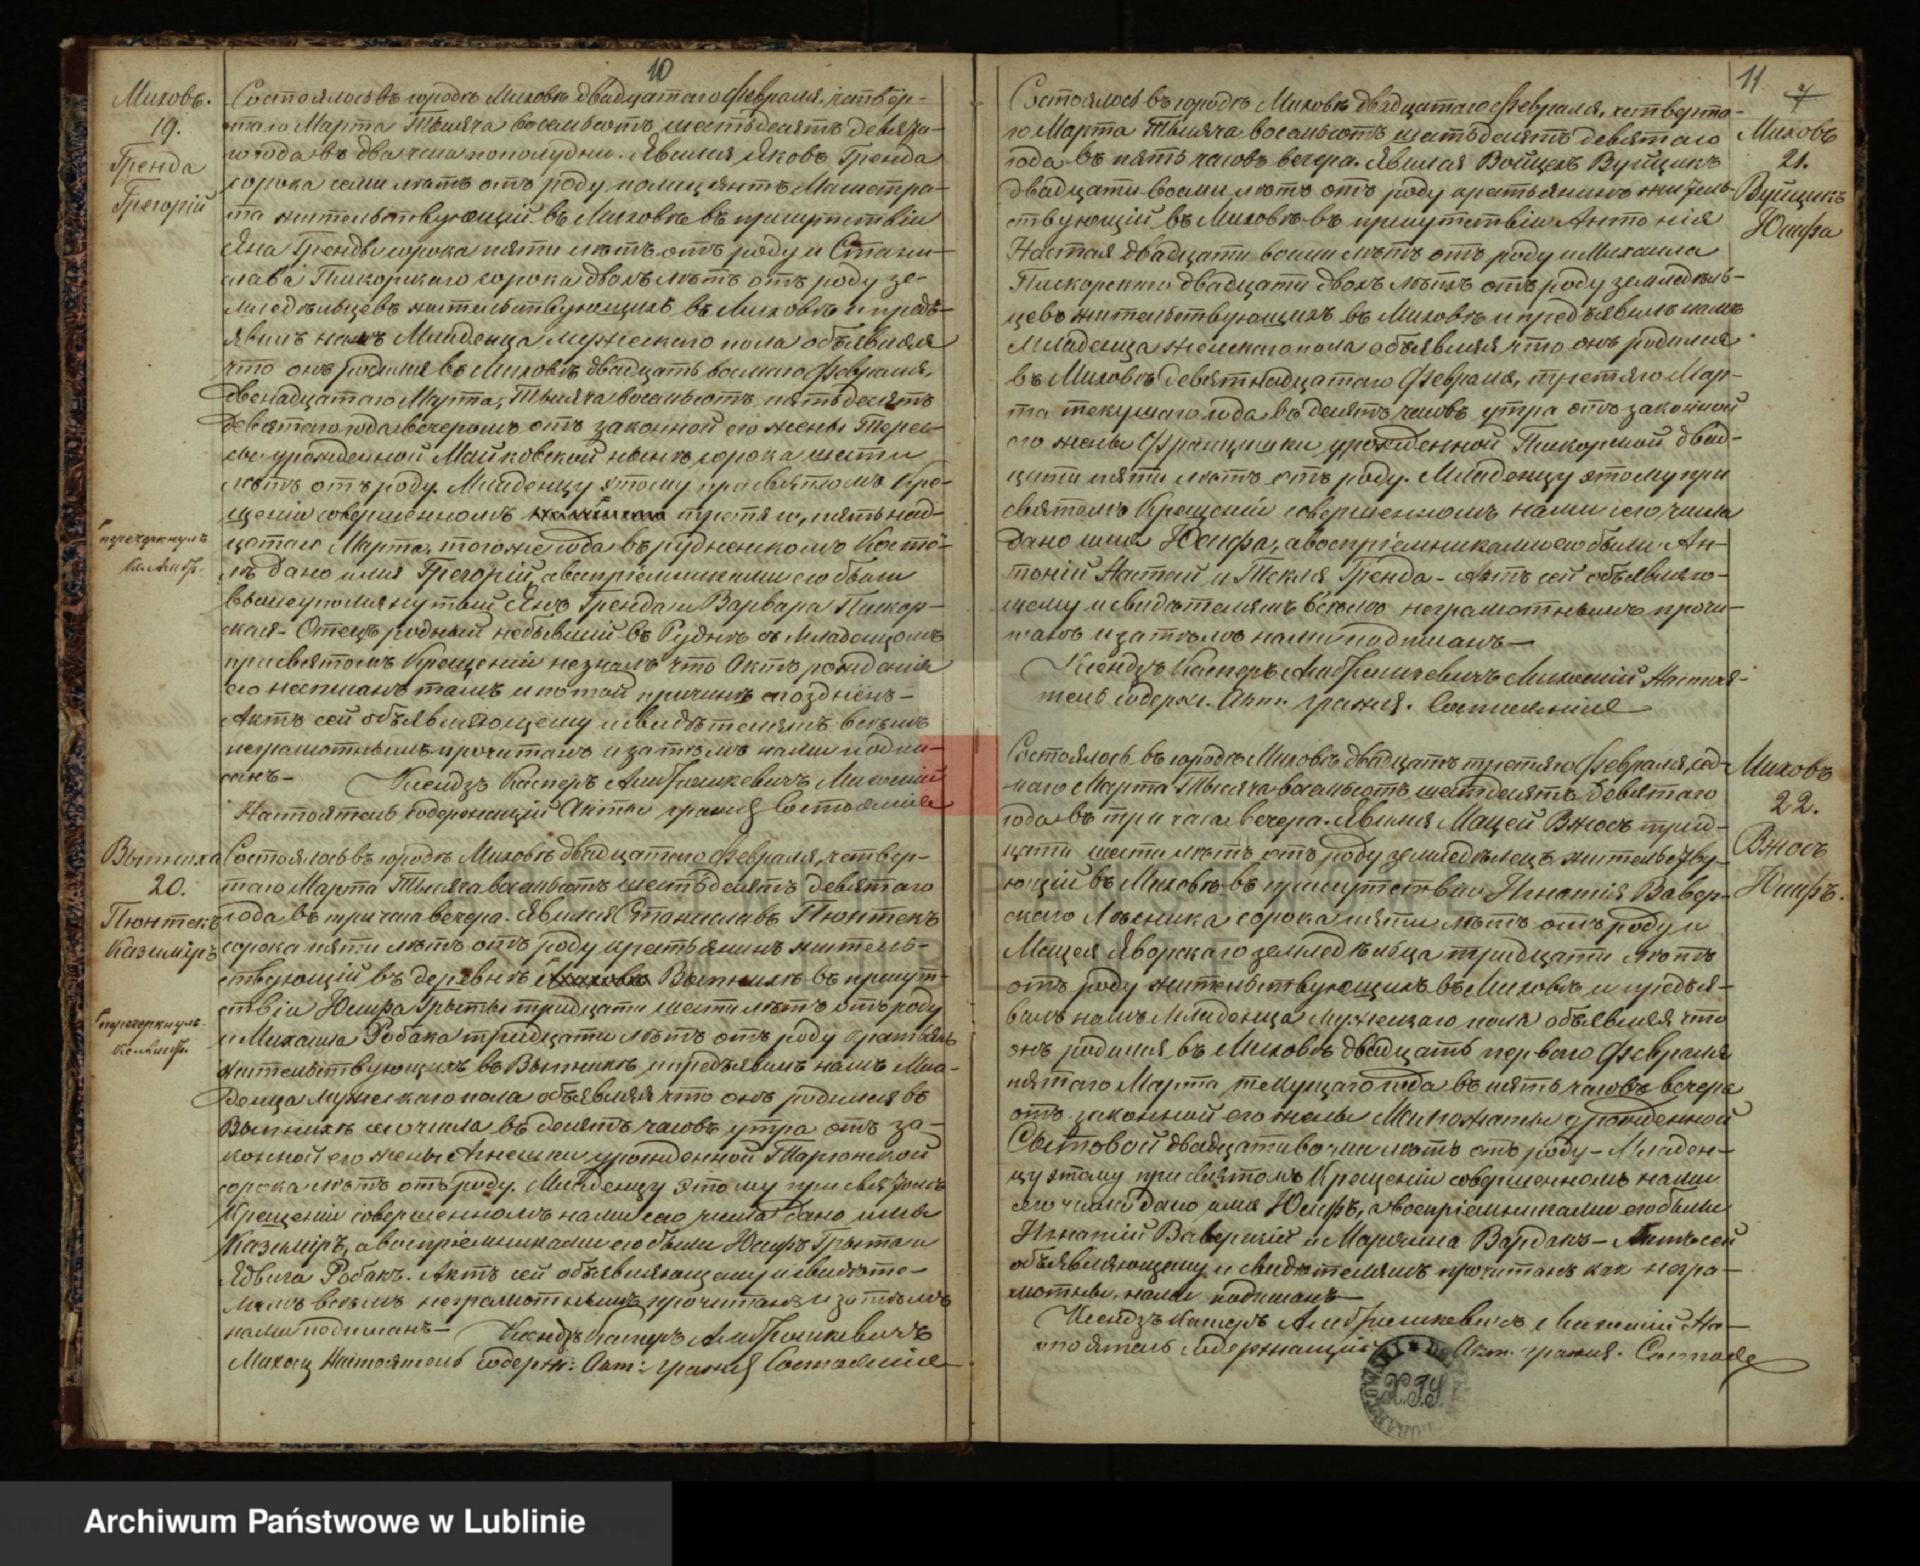 10
Миховъ.
19.
Гренда
Грегорій
Состоялось въ городѣ Миховѣ двадцатаго Февраля, четвер-
таго Марта Тысяча восемьсотъ шестьдесятъ девята-
го года въ два часа пополудни. Явился Яковъ Гренда
сорока семи лѣтъ отъ роду полиціянтъ Магистра-
та жительствующій въ Миховѣ въ присутствіи
Яна Гренды сорока пяти лѣтъ отъ роду и Стани-
слава Пикорскаго сорока двохъ лѣтъ отъ роду зе-
мледѣльцевъ жительствующихъ въ Миховѣ и предъ-
явилъ намъ Младенца мужескаго пола объявляя
что онъ родился въ Миховѣ двадцать восьмаго Февраля,
двенадцатаго Марта, Тысяча восемьсотъ пятьдесятъ
девятаго года вечеромъ отъ законной его жены Терес-
сы урожденной Майковской нынѣ сорока шести
лѣтъ отъ роду. Младенцу этому при святомъ Кре-
щеніи совершенномъ третяго, пятьнад-
цатаго Марта, того же года въ Рудненскомъ Костё-
лѣ дано имя Грегорій, а воспріемниками его были
вышеупомянутый Янъ Гренда и Варвара Пикор-
ская - Отецъ родный небывшій въ Руднѣ съ Младенцомъ
при святомъ Крещеніи незналъ что Актъ рожденія
его несписанъ тамъ и по той причинѣ опозднёнъ -
Актъ сей объявляющему и свидѣтелямъ всѣмъ
неграмотнымъ прочитанъ и затѣмъ нами подпи-
санъ - Ксендзъ Касперъ Амброшкевичъ Миховскій
Настоятель содержащій Акты гражд Состоянія
перечеркнулъ
Вытниха
20.
Пюнтекъ
Казиміръ
Состоялось въ городѣ Миховѣ двадцатаго Февраля, четвер-
таго Марта Тысяча восемьсотъ шестьдесятъ девятаго
года въ три часа вечера. Явился Станиславъ Пюнтекъ
сорока пяти лѣтъ отъ роду крестьянинъ житель-
ствующій въ деревнѣ Вытнихѣ въ присут-
ствіи Юзефа Грыты тридцати шести лѣтъ отъ роду
и Михаила Робака тридцати лѣтъ отъ роду крестьянъ
жительствующихъ въ Вытнихѣ и предъявилъ намъ Мла-
денца мужескаго пола объявляя что онъ родился въ
Вытнихѣ сего числа въ десять часовъ утра отъ за-
конной его жены Агнешки урожденной Таргонской
сорока лѣтъ отъ роду. Младенцу этому при святомъ
Крещеніи совершенномъ нами сего числа дано имя
Казиміръ, а воспріемниками его были Юзефъ Грыта и
Ядвига Робакъ. Актъ сей объявляющему и свидѣте-
лямъ всѣмъ неграмотнымъ прочитанъ и затѣмъ
нами подписанъ - Ксендзъ Касперъ Амброшкевичъ
Миховскій Настоятель содерж: Акт: гражд Состоянія
перечеркнулъ
11
Миховъ
21.
Вуйцикъ
Юзефа
Состоялось въ городѣ Миховѣ двадцатаго Февраля, четверта-
го Марта Тысяча восемьсотъ шестьдесятъ девятаго
года въ пять часовъ вечера. Явился Войцехъ Вуйцикъ
двадцати восьми лѣтъ отъ роду крестьянинъ житель-
ствующій въ Миховѣ въ присутствіи Антонія
Настая двадцати восьми лѣтъ отъ роду и Михаила
Пикорскаго двадцати двохъ лѣтъ отъ роду земледѣль-
цевъ жительствующихъ въ Миховѣ и предъявилъ намъ
Младенца женскаго пола объявляя что онъ родился
въ Миховѣ девятнадцатаго Февраля, третяго Мар-
та текущаго года въ десять часовъ утра отъ законной
его жены Францишки урожденной Пикорской двад-
цати пяти лѣтъ отъ роду. Младенцу этому при
святомъ Крещеніи совершенномъ нами сего числа
дано имя Юзефа, а воспріемниками его были Ан-
тоній Настай и Текля Гренда - Актъ сей объявляю-
щему и свидѣтелямъ всѣмъ неграмотнымъ прочи-
танъ и затѣмъ нами подписанъ -
Ксендзъ Касперъ Амброшкевичъ Миховскій Настоя-
тель содерж. Акт. гражд. Состоянія
Миховъ
22.
Вносъ
Юзефъ.
Состоялось въ городѣ Миховѣ двадцать третяго Февраля, сед-
маго Марта Тысяча восемьсотъ шестдесятъ девятаго
года въ три часа вечера. Явился Мацей Вносъ трид-
цати шести лѣтъ отъ роду земледѣлецъ жительству-
ющій въ Миховѣ въ присутствіи Игнатія Вавер-
скаго Лѣсника сорока пяти лѣтъ отъ роду и
Мацея Яворскаго земледѣльца тридцати лѣтъ
отъ роду жительствующихъ въ Миховѣ и предъя-
вилъ намъ Младенца Мужескаго пола объявляя что
онъ родился въ Миховѣ двадцать перваго Февраля
пятаго Марта текущаго года въ пять часовъ вечера
отъ законной его жены Малгожаты урожденной
Сытовой двадцати восьми лѣтъ отъ роду - Младен-
цу этому при святомъ Крещеніи совершенномъ нами
сего числа дано имя Юзефъ, а воспріемниками его были
Игнатій Ваверскій и Маріянна Вардакъ - Актъ сей
объявляющему и свидѣтелямъ прочитанъ какъ негра-
мотны, нами подписанъ -
Ксендзъ Касперъ Амброшкевичъ Миховскій На-
стоятель содержащій Акт. гражд. Состоя
Archiwum Państwowe w Lublinie